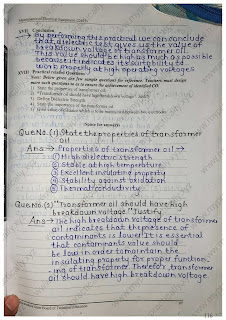 XVII Conclusion
By performing this practical we can conclude
that dielectric test gives us the value of
breakdown voltage of transformer oil.
This value should be high as much as possible
because it indicates it's suitability to
work properly at high operating voltages.
XVIII Practical related Questions
Note: Below given are few sample questions for reference. Teachers must design
more such questions so as to ensure the achievement of identified CO.
1) State the properties of transformer oil.
2) "Transformer oil should have high breakdown voltage" Justify.
3) Define Dielectric Strength
4) State the importance of the transformer oil
Space for answers
Que No.(1) State the properties of transformer
oil
Ans → Properties of transformer oil →
① High dielectric strength
② Stable at high temperature
③ Excellent insulating property
④ Stability against oxidation
⑤ Thermal conductivity
Que No.(2) "Transformer oil should have high
breakdown voltage" Justify
Ans → The high breakdown voltage of transformer
oil indicates that the presence of
contaminants is lower. It is essential
that contaminants value should
be low in order to maintain the
insulating property for proper function
-ing of transformer. Therefor transformer
oil should have high breakdown voltage.
116